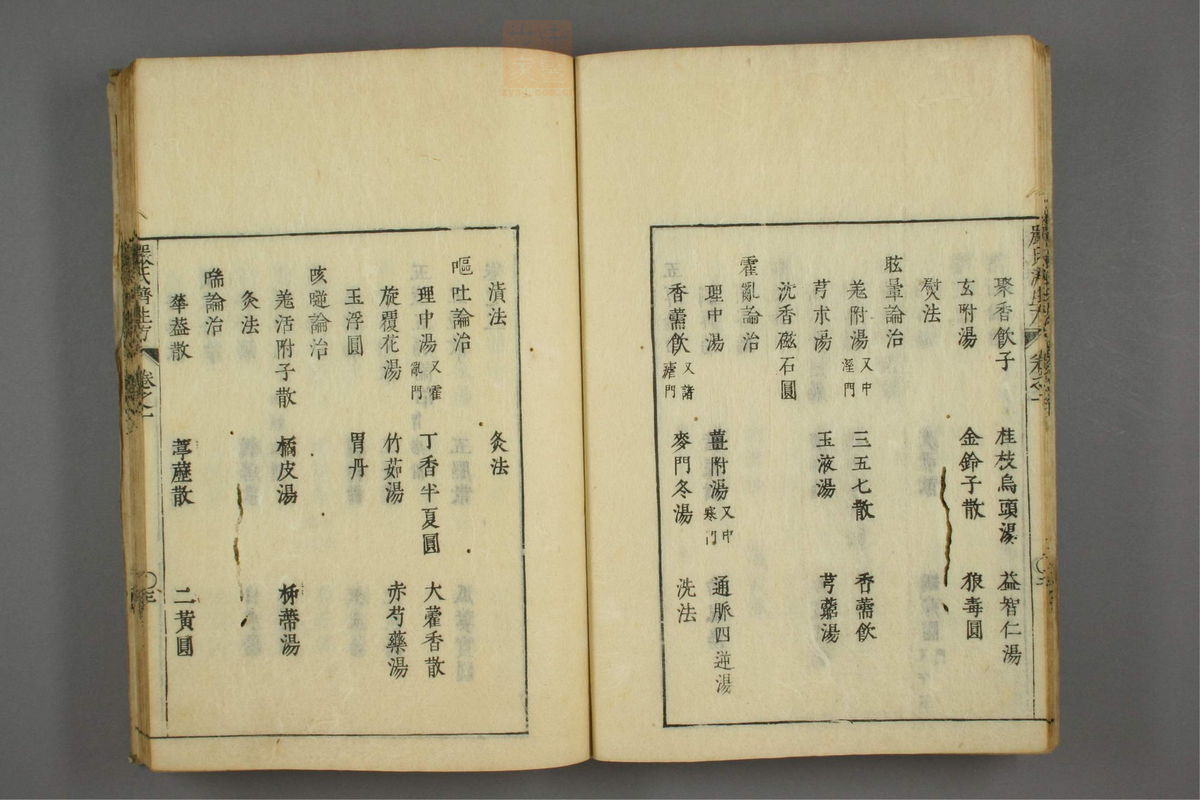 聚香飲子　桂枝烏頭湯　益智仁湯
玄附湯　金鈴子散　狼毒圓
熨法
眩暈論治
羗附湯又中溼門　三五七散　香薷飲
芎朮湯　玉液湯　芎藭湯
沈香磁石圓
霍亂論治
理中湯　薑附湯又中寒門　通脈四逆湯
香薷飲又諸瘧門　麥門冬湯　洗法
嚴氏濟生方　卷之一
漬法　灸法
嘔吐論治
理中湯又霍亂門　丁香半夏圓　大藿香散
旋覆花湯　竹茹湯　赤芍藥湯
玉浮圓　胃丹
咳噫論治
羗活附子散　橘皮湯　柿蔕湯
灸法
喘論治
華葢散　葶藶散　二黃圓
嚴氏濟生方　卷之一